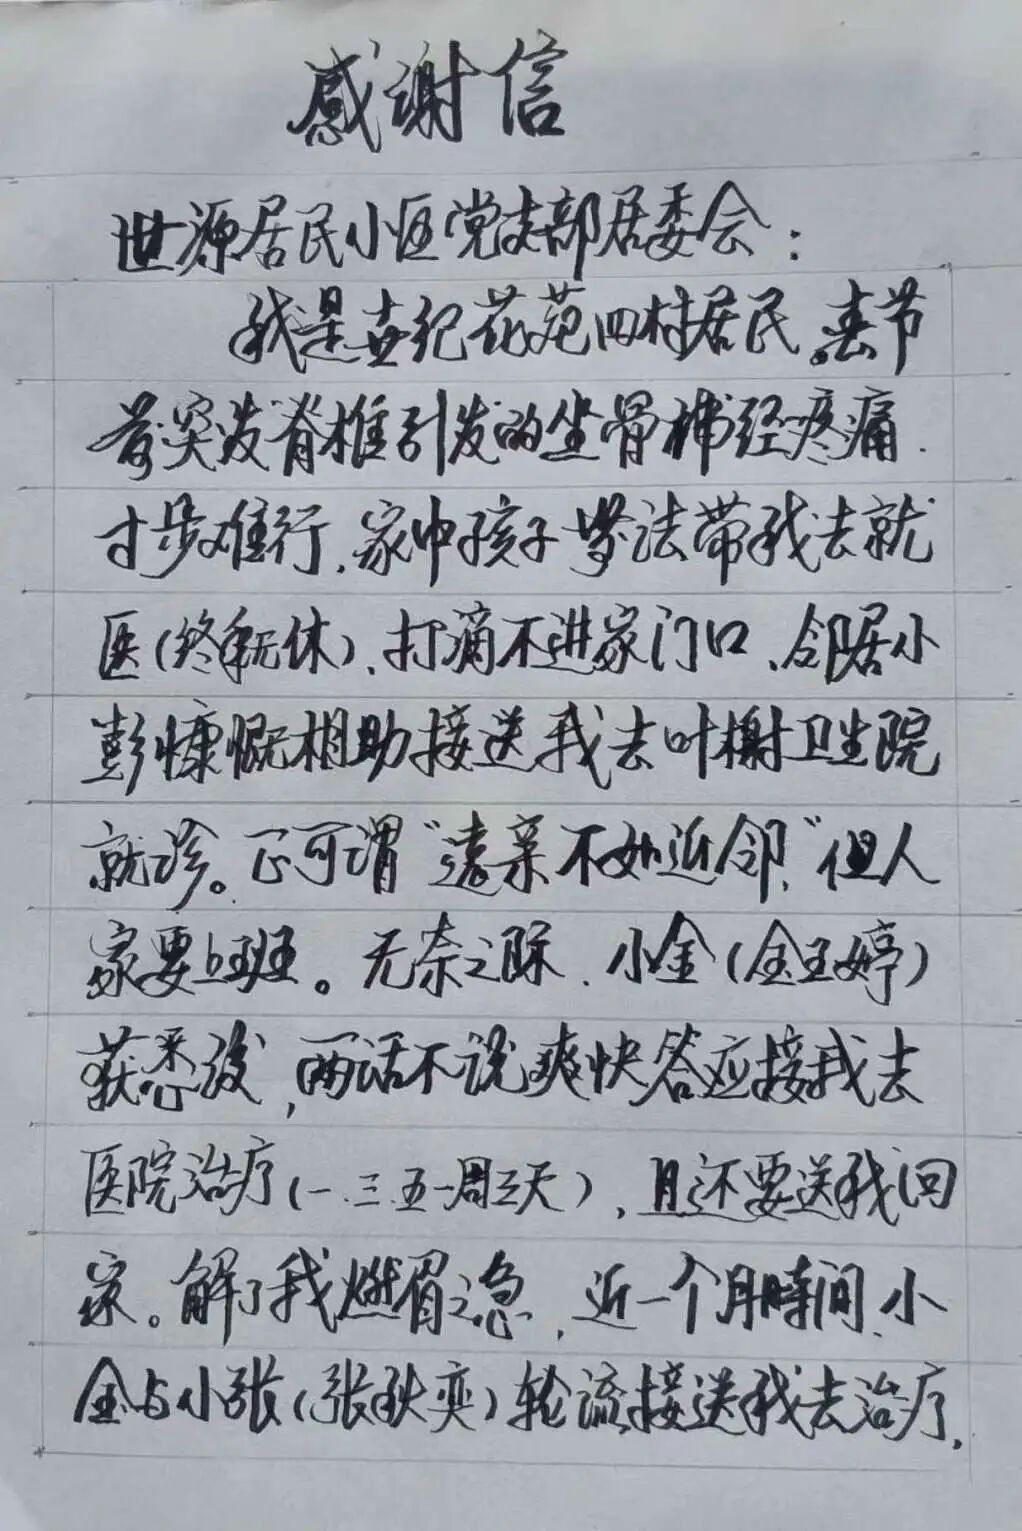 感谢信
世源居民小区党支部居委会：
我是世纪花苑四村居民。春节
前突发脊椎引发的坐骨神经疼痛.
寸步难行,家中孩子学法带我去就
医(终年无休),打滴不进家门口、邻居小
彭慷慨相助接送我去叶榭卫生院
就诊。正可谓“远亲不如近邻,”但人
家要上班。无奈之际.小金(金玉婷)
获悉后,两话不说爽快答应接我去
医院治疗(一.三.五一周三天),且还要送我回
家。解了我燃眉之急,近一个月时间、小
金与小张(张秋奕)轮流接送我去治疗,